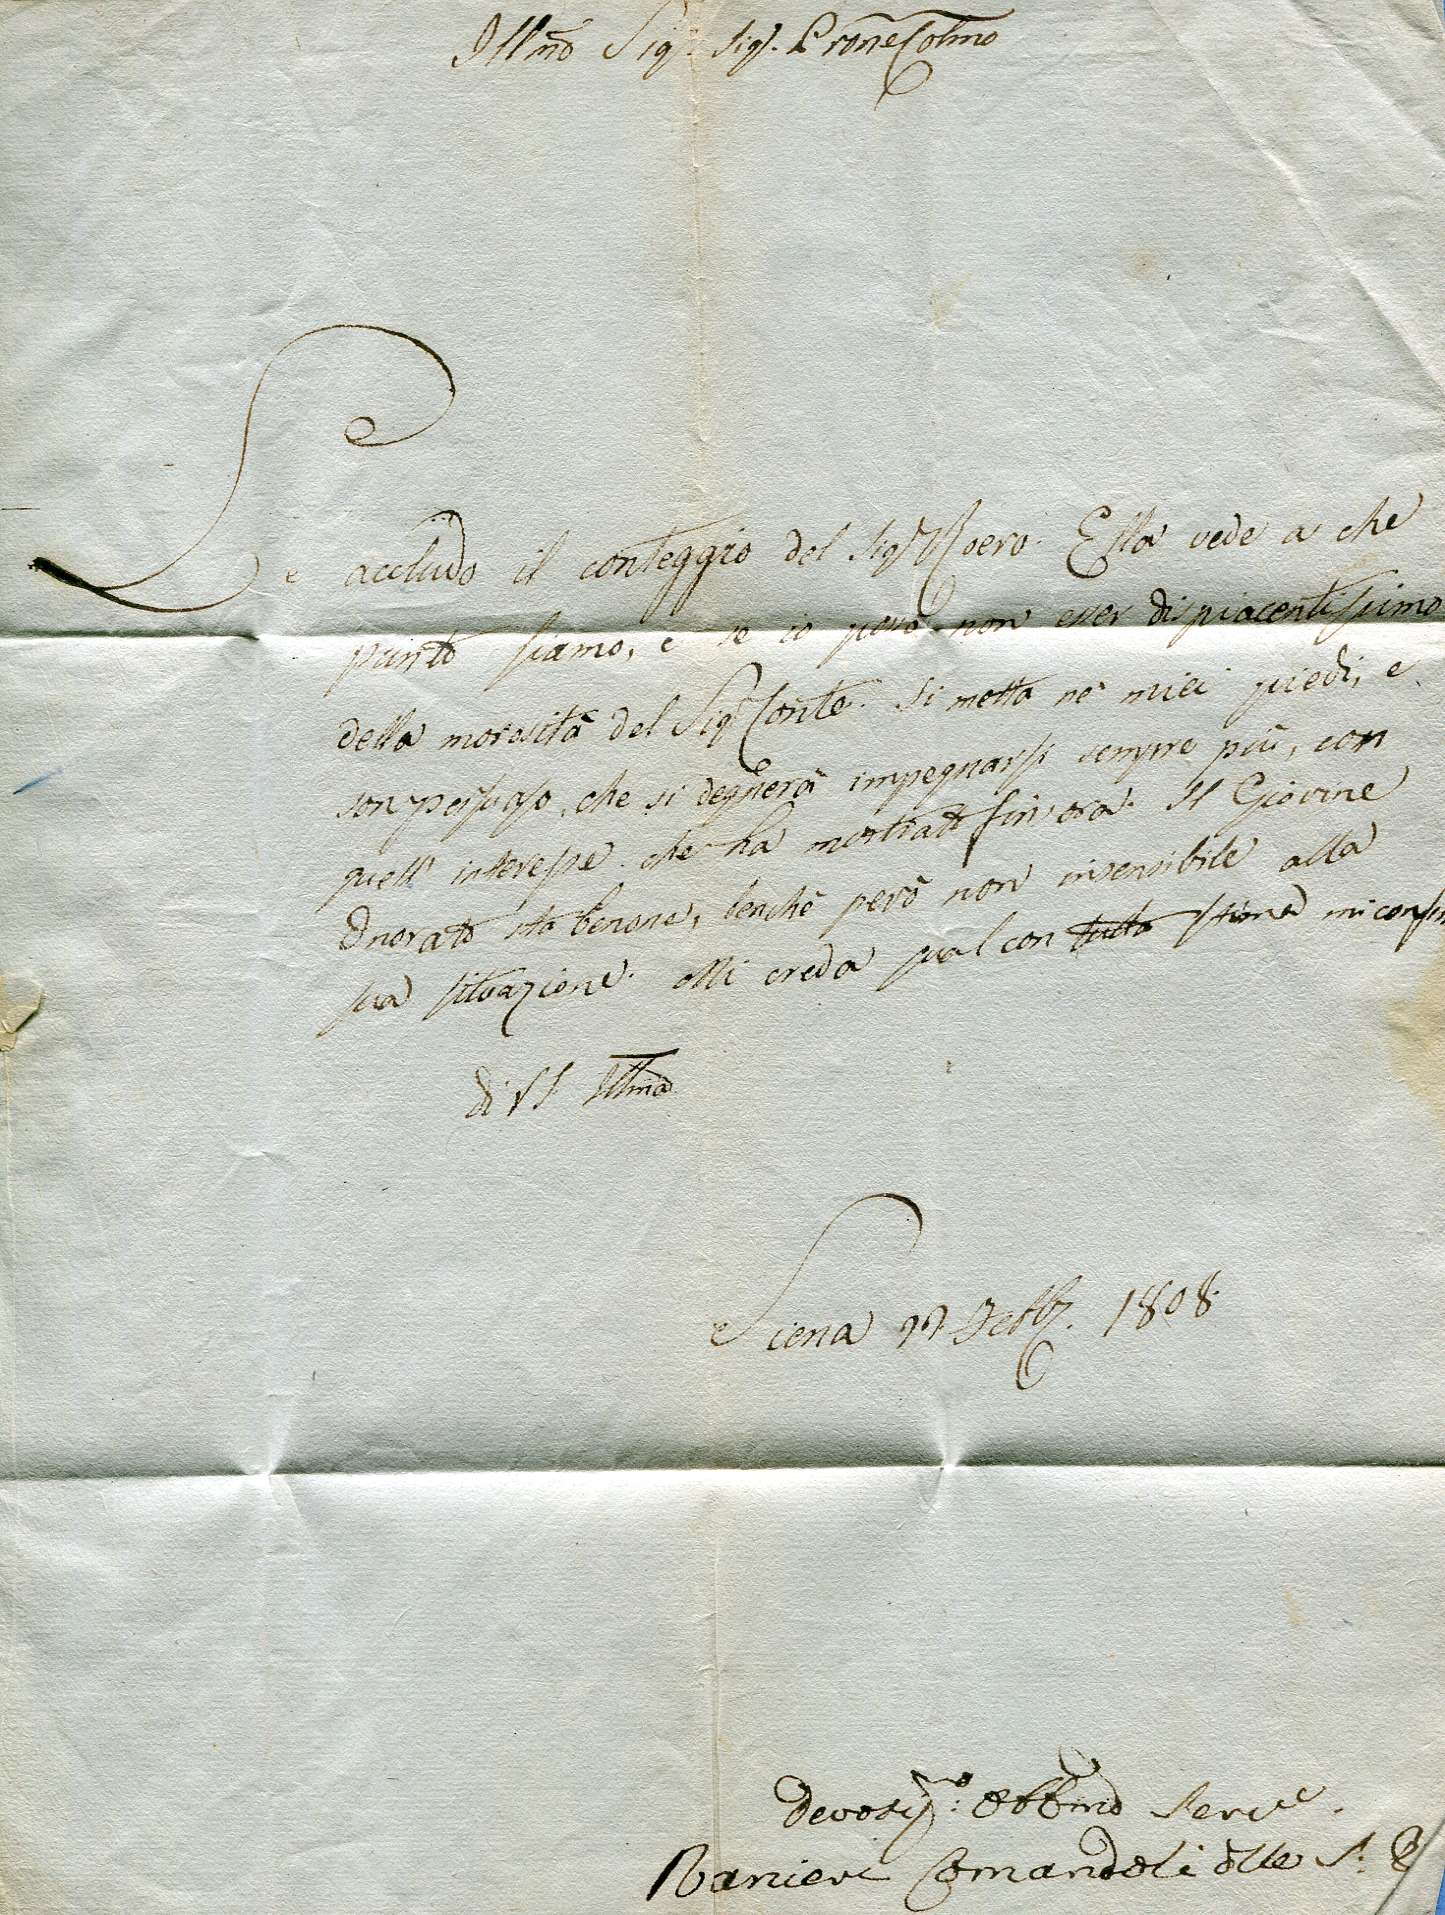 Illmo Sigr. Sigr. Prone Colmo
Le accludo il conteggio del Sigr. Coero. Ella vede a che
punto siamo, e se io posso non esser dispiacentissimo
della morosità del Sigr. Conte. Si metta ne miei piedi, e
son persuaso, che si degnerà impegnarsi sempre più, con
quell' interesse che ha mostrato fin'ora. Il Giovine
Onorato sta benone, benchè però non insensibile alla
sua situazione. Mi creda qual con tutta stima mi confermo
di VS. Illma
Siena Settb. 1808.
Devotis.mo Obbmo Serve.
Ranieri Comandoli